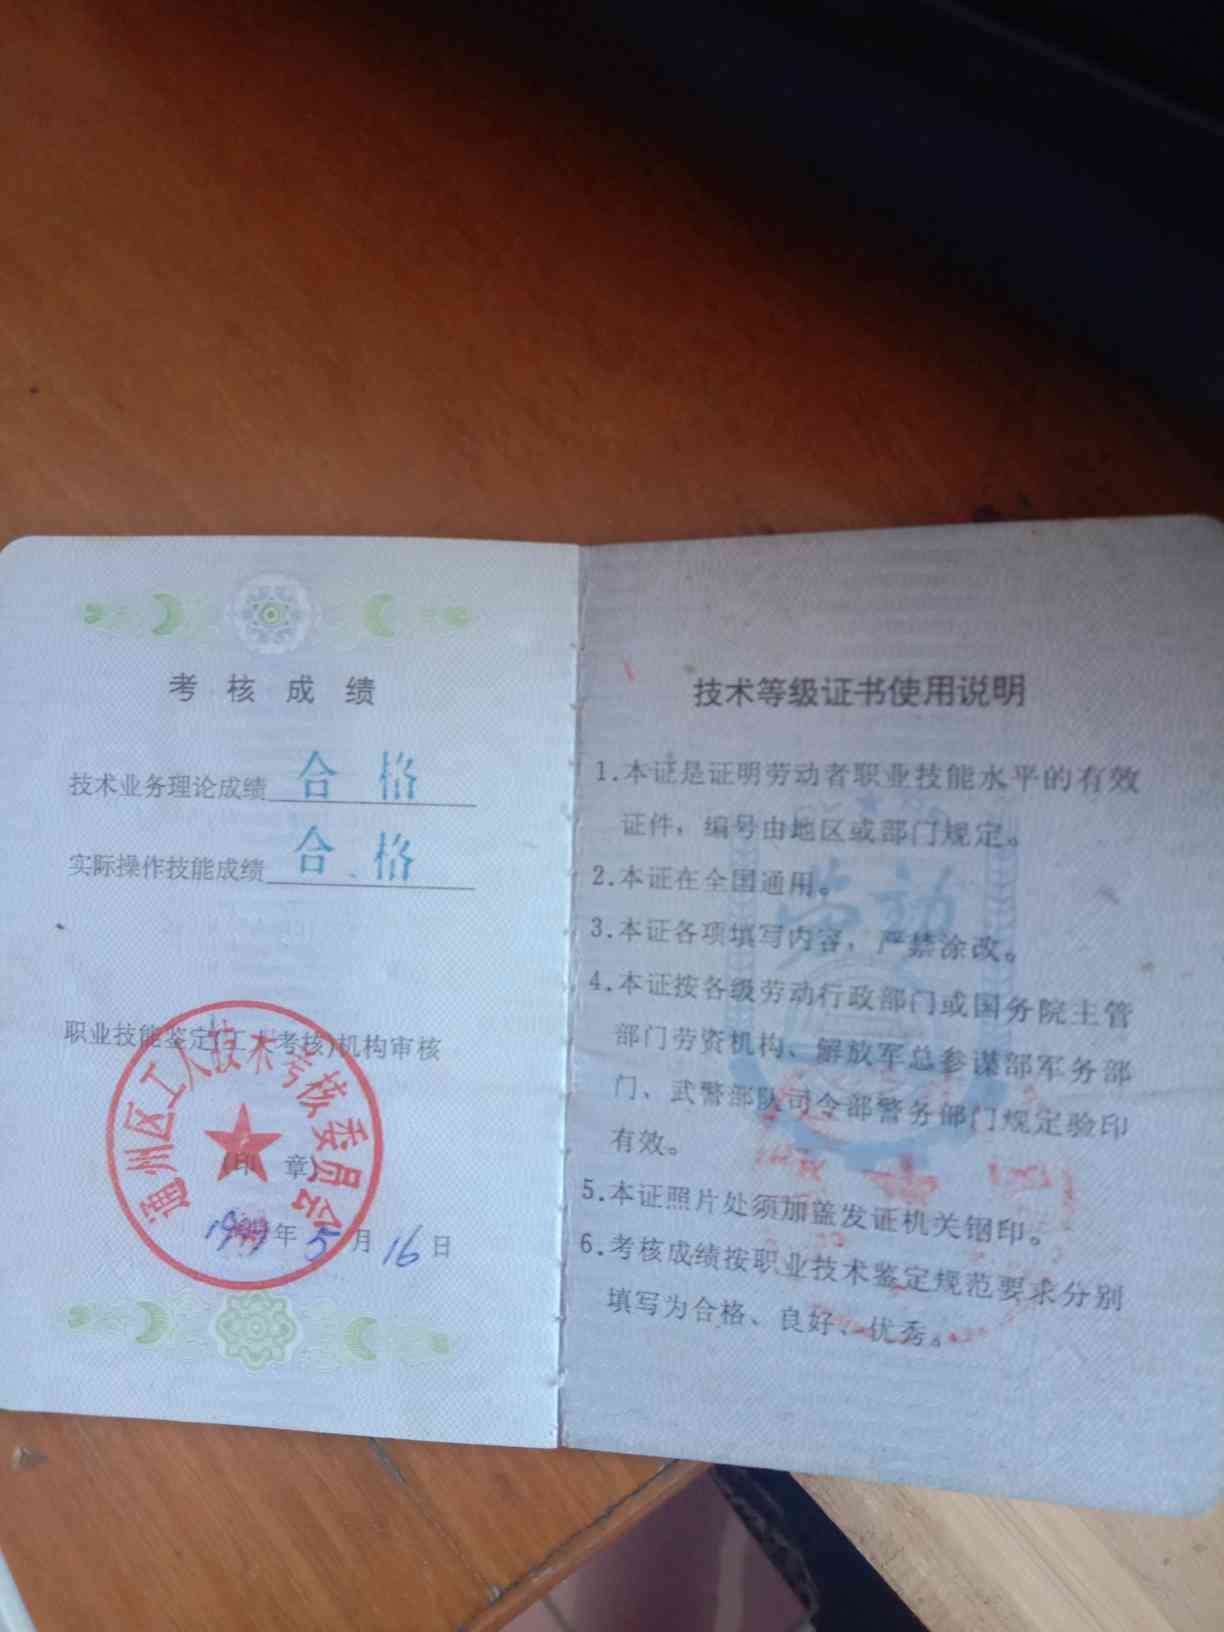 考核成绩
技术业务理论成绩 合格
实际操作技能成绩 合格
职业技能鉴定(工人考核)机构审核
通州区工人技术考核委员会
(印 章)
年5月16日
技术等级证书使用说明
1.本证是证明劳动者职业技能水平的有效
证件，编号由地区或部门规定。
2.本证在全国通用。
3.本证各项填写内容，严禁涂改。
4.本证按各级劳动行政部门或国务院主管
部门劳资机构、解放军总参谋部军务部
门、武警部队司令部警务部门规定验印
有效。
5.本证照片处须加盖发证机关钢印。
6.考核成绩按职业技术鉴定规范要求分别
填写为合格、良好、优秀。
劳动